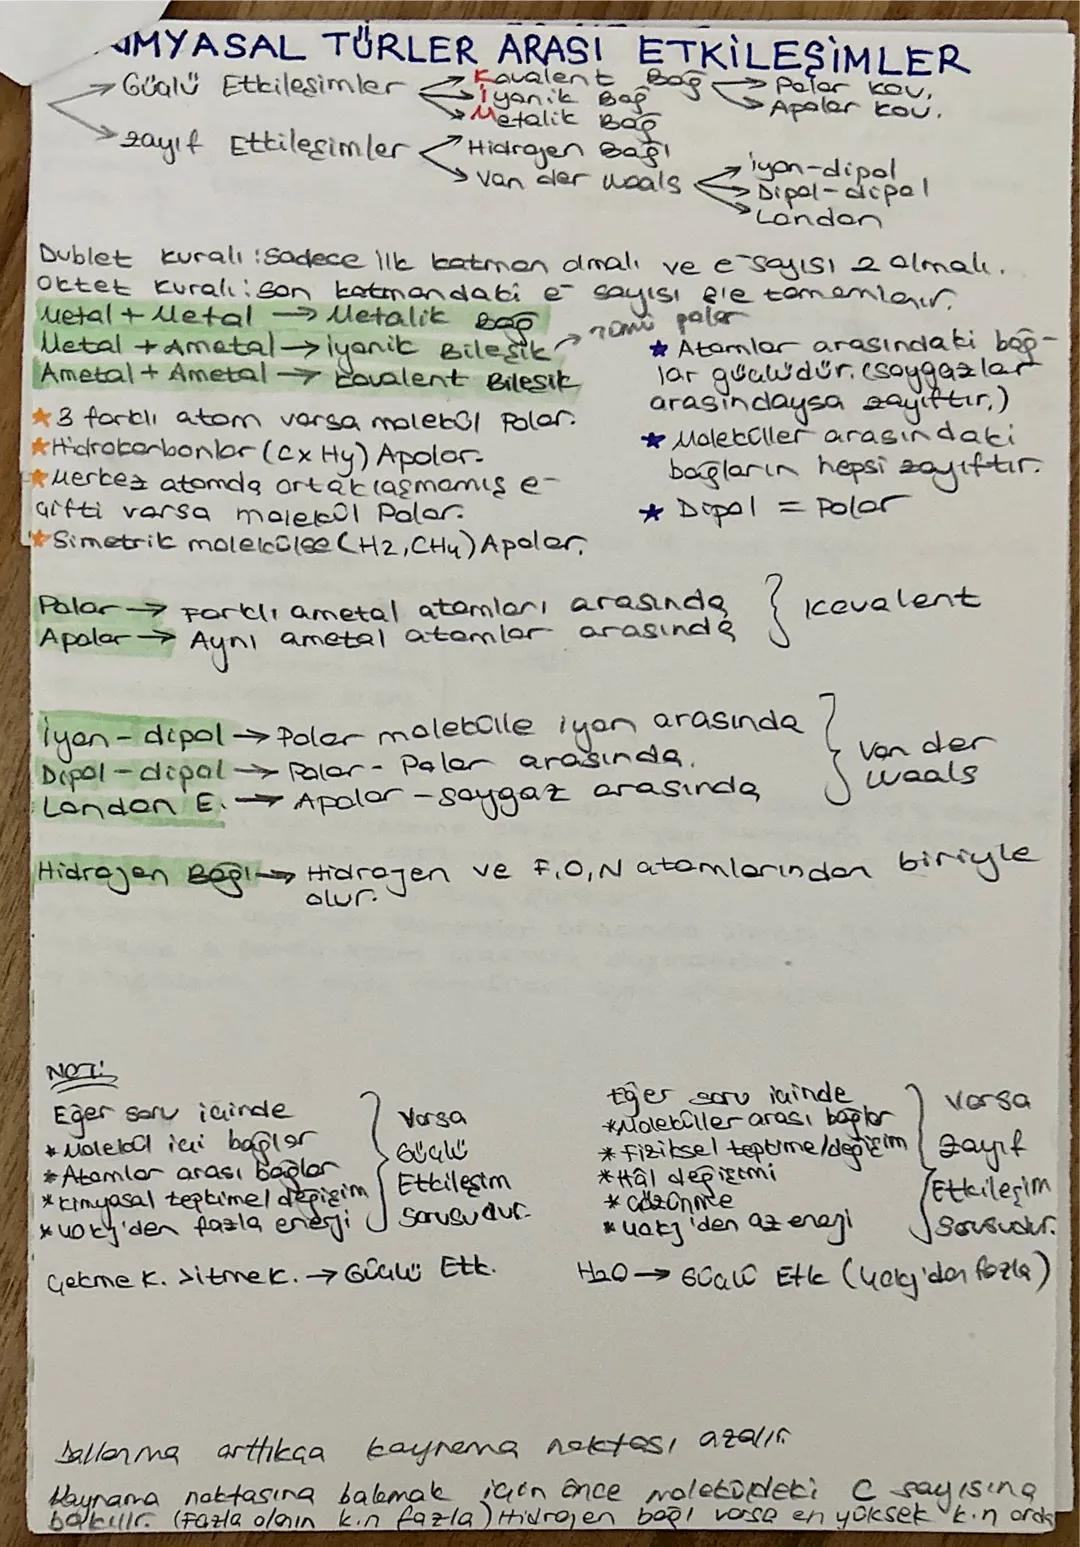 KİMYASAL TÜRLER ARASI ETKİLEŞİMLER
Güçlü Etkileşimler → Kovalent Bağ → Polar kov.
→ Apolar kov.
→ İyonik Bağ
→ Metalik Bağ
zayıf Etkileşimler → Hidrojen Bağı
→ Van der Waals → iyon-dipol
→ Dipol-dipol
→ London
Dublet kuralı: Sadece ilk katman olmalı ve e⁻ sayısı 2 olmalı.
Oktet kuralı: Son katmandaki e⁻ sayısı 8'e tamamlanır.
Metal + Metal → Metalik Bağ
Metal + Ametal → İyonik Bileşik → Tümü polar
Ametal + Ametal → Kovalent Bileşik
★ 3 farklı atom varsa molekül Polar.
★ Hidrokarbonlar (CxHy) Apolar.
★ Merkez atomda ortaklaşmamış e-
çifti varsa molekül Polar.
★ Simetrik molekülse (H2, CH4) Apolar.
★ Atomlar arasındaki bağ-
lar güçlüdür. (soygazlar
arasındaysa zayıftır.)
★ Moleküller arasındaki
bağların hepsi zayıftır.
★ Dipol = Polar
Polar → Farklı ametal atomları arasında
Apolar → Aynı ametal atomlar arasında
} Kovalent
İyon-dipol → Polar molekülle iyon arasında
Dipol-dipol → Polar-Polar arasında.
London E. → Apolar-soygaz arasında
} Van der
Waals
Hidrojen Bağı → Hidrojen ve F,O,N atomlarından biriyle
olur.
NOT:
Eğer soru içinde
* Molekül içi bağlar
* Atomlar arası bağlar
* kimyasal tepkime/değişim
* 40kj'den fazla enerji
} Varsa
Güçlü
Etkileşim
Sorusudur.
Çekme k. > itme k. → Güçlü Etk.
Eğer soru içinde
* Moleküller arası bağlar
* Fiziksel tepkime/değişim
* Hâl değişimi
* Çözünme
* 40kj'den az enerji
} Varsa
zayıf
Etkileşim
Sorusudur.
H2O → Güçlü Etk (40kj'dan fazla)
Dallanma arttıkça kaynama noktası azalır
Kaynama noktasına bakmak için önce moleküldeki C sayısına
bakılır. (Fazla olanın k.n fazla) Hidrojen bağı varsa en yüksek k.n orda